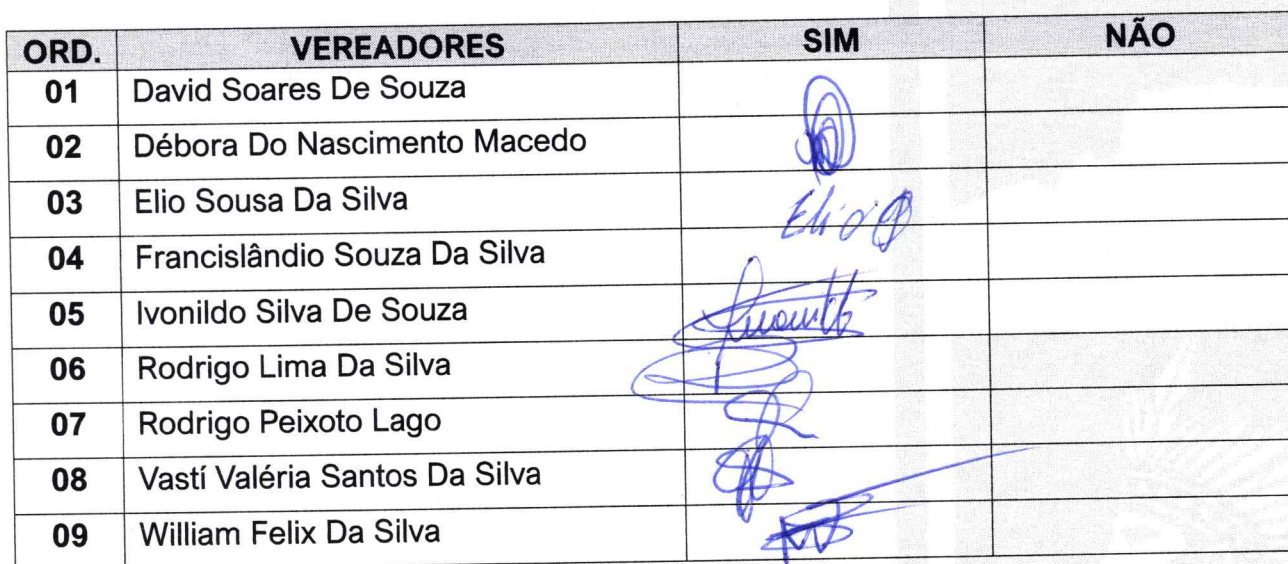 ORD. VEREADORES SIM NÃO
01 David Soares De Souza
02 Débora Do Nascimento Macedo
03 Elio Sousa Da Silva Elio
04 Francislândio Souza Da Silva
05 Ivonildo Silva De Souza
06 Rodrigo Lima Da Silva
07 Rodrigo Peixoto Lago
08 Vastí Valéria Santos Da Silva
09 William Felix Da Silva